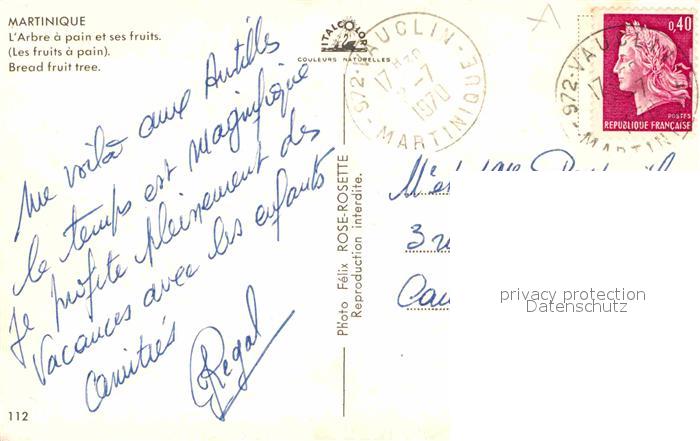 MARTINIQUE
L'Arbre à pain et ses fruits.
(Les fruits à pain).
Bread fruit tree.
COULEURS NATURELLES
972-VAUCLIN-
17H30
-7
1970
MARTINIQUE
0,40
POSTES
RÉPUBLIQUE FRANÇAISE
972-VAUCLIN
17
MARTINIQUE
Me voilà aux Antilles
le temps est magnifique
je profite pleinement des
Vacances avec les enfants
Amitiés
Regal
Photo Félix ROSE-ROSETTE
Reproduction interdite.
3
privacy protection
Datenschutz
112